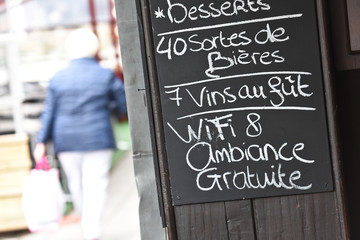 *Desserts
40 Sortes de
Bières
7 Vins au fût
WiFi &
Ambiance
Gratuite